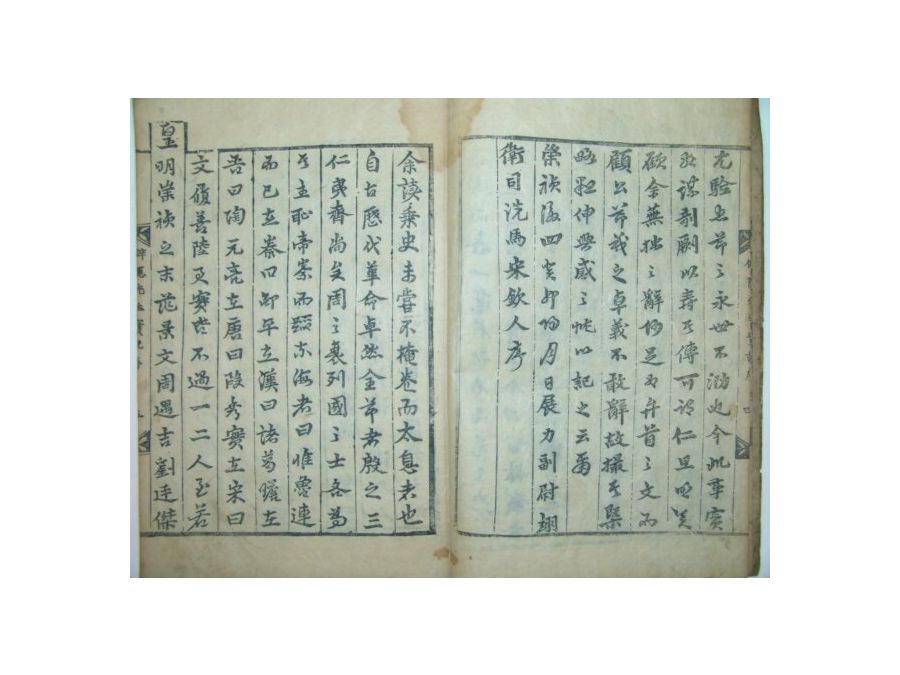 尤驗忠節之永世不泐也今此事實
謀剞劂以壽其傳可謂仁且明矣
顧余蕪拙之辭何足为弁首之文而
顧公節義之卓義不敢辭故撮其槩
略不伸興感之忱以記之云爾
崇禎後四 月日展力副尉翊
衛司洗馬宋欽人序
余讀乘史未嘗不掩卷而太息者也
自古歷代革命卓然全節者殷之三
仁夷齊尚矣周之衰列國之士各为
其主恥帝秦而蹈東海者曰惟魯連
而已在秦曰邵平在漢曰諸葛瞻在
晋曰陶元亮在唐曰段秀實在宋曰
文履善陸君實 不過一二人至若
皇明崇禎之末范景文周遇吉劉連傑